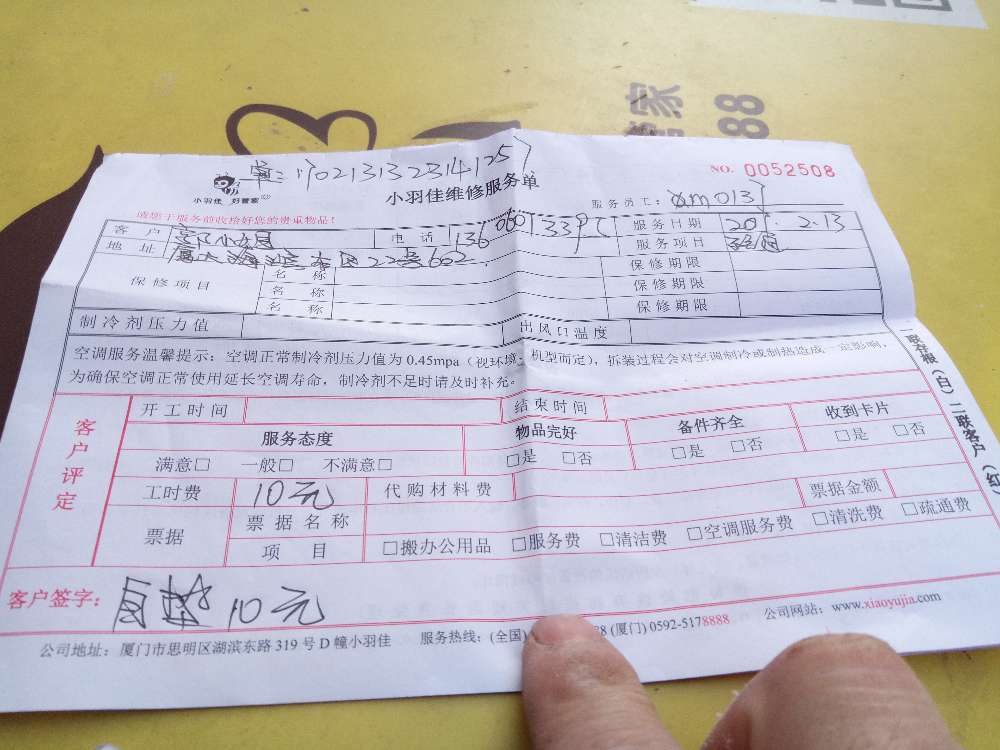 管家
88
NO. 0052508
小羽佳 好管家
小羽佳维修服务单
服务员工:
请您于服务前收拾好您的贵重物品!
客 户 电 话 服务日期 2.13
地 址 服务项目
保修项目 名 称 保修期限
名 称 保修期限
名 称 保修期限
制冷剂压力值 出风口温度
空调服务温馨提示:空调正常制冷剂压力值为0.45mpa(视环境、机型而定),拆装过程会对空调制冷或制热造成一定影响,
为确保空调正常使用延长空调寿命,制冷剂不足时请及时补充。
一联存根(白)二联客户(红)
客户评定
开工时间 结束时间
服务态度 物品完好 备件齐全 收到卡片
满意□ 一般□ 不满意□ □是 □否 □是 □否 □是 □否
工时费 10元 代购材料费 票据金额
票据 票据名称
项 目 □搬办公用品 □服务费 □清洁费 □空调服务费 □清洗费 □疏通费
客户签字: 10元
公司地址:厦门市思明区湖滨东路319号D幢小羽佳 服务热线:(全国) 88 (厦门) 0592-5178888 公司网站:www.xiaoyujia.com